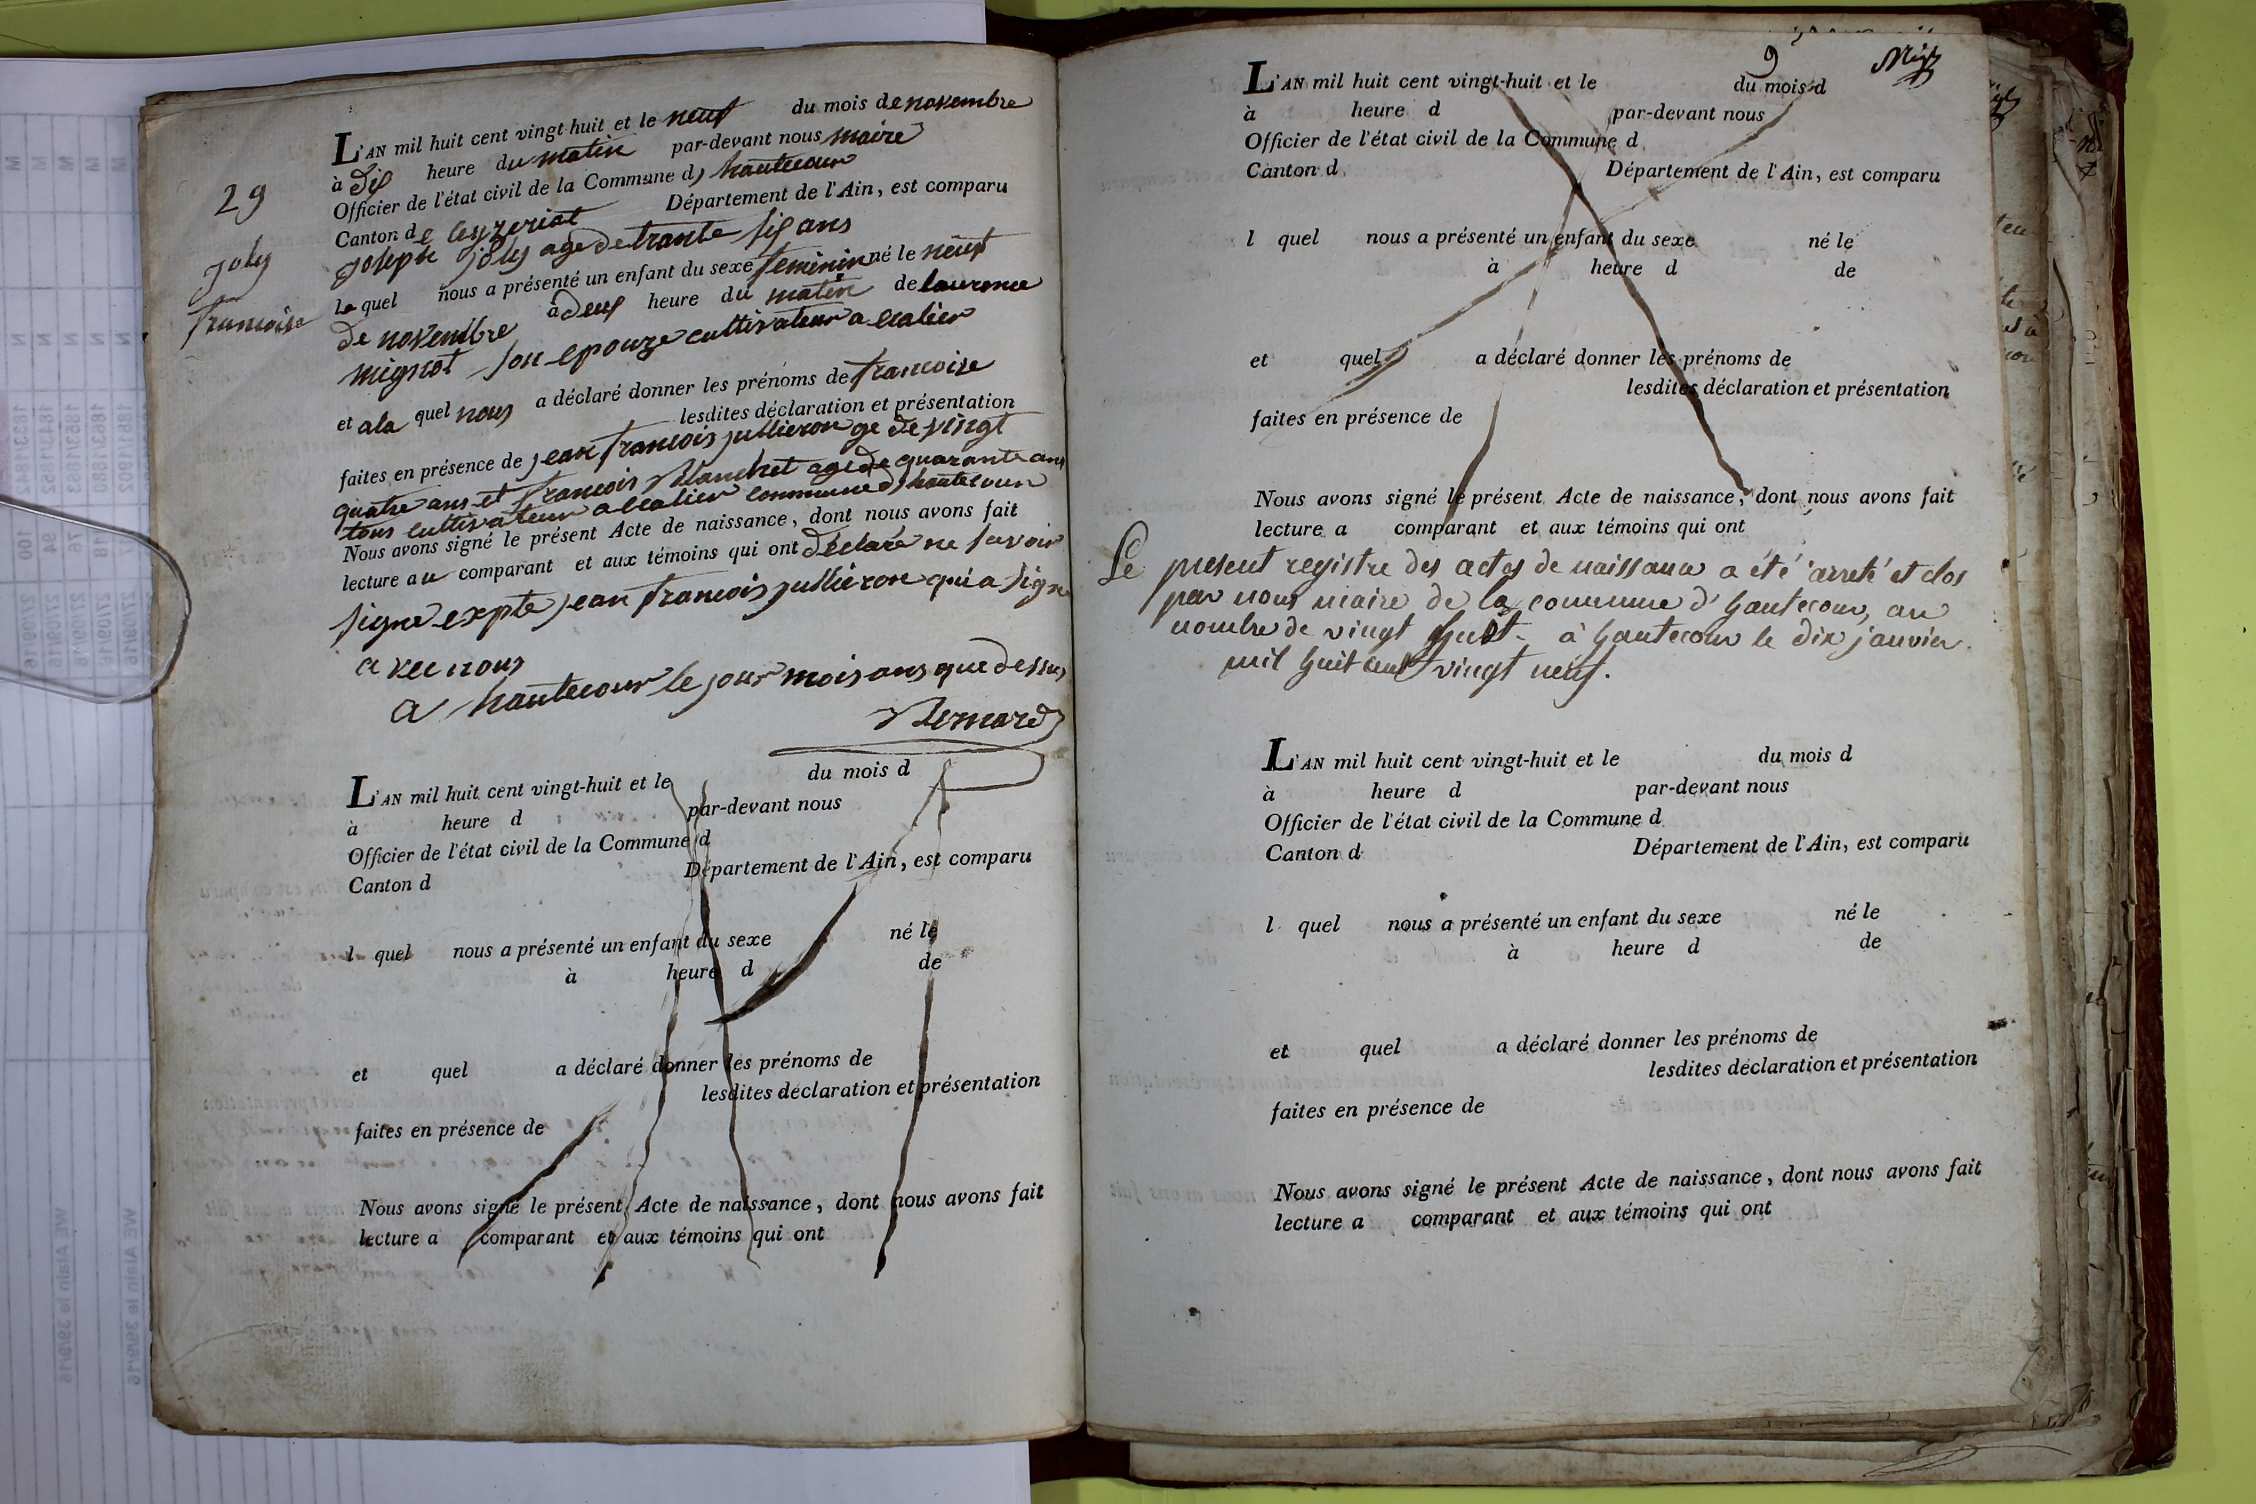 29
joly
francoise
L'AN mil huit cent vingt-huit et le neuf du mois de novembre
à dix heure du matin par-devant nous maire
Officier de l'état civil de la Commune d, hautecour
Canton de Ceyzeriat Département de l'Ain, est comparu
joseph joly age de trante six ans
le quel nous a présenté un enfant du sexe feminin né le neuf
de novembre à deux heure du matin de laurence
mignot son epouze cultivateur a
et a la quel nous a déclaré donner les prénoms de francoise
lesdites déclaration et présentation
faites en présence de jean francois jullieron ge de vingt
quatre ans et francois Blanchet age de quarante ans
tous cultivateur a commune d, hautecour
Nous avons signé le présent Acte de naissance, dont nous avons fait
lecture au comparant et aux témoins qui ont déclaré ne savoir
signe expte jean francois jullieron qui a signe
avec nous
a hautecour le jour mois ans que dessus
Bernard
L'AN mil huit cent vingt-huit et le du mois d
à heure d par-devant nous
Officier de l'état civil de la Commune d
Canton d Département de l'Ain, est comparu
l quel nous a présenté un enfant du sexe né le
à heure d de
et quel a déclaré donner les prénoms de
lesdites déclaration et présentation
faites en présence de
Nous avons signé le présent Acte de naissance, dont nous avons fait
lecture a comparant et aux témoins qui ont
9
L'AN mil huit cent vingt-huit et le du mois d
à heure d par-devant nous
Officier de l'état civil de la Commune d
Canton d Département de l'Ain, est comparu
l quel nous a présenté un enfant du sexe né le
à heure d de
et quel a déclaré donner les prénoms de
lesdites déclaration et présentation
faites en présence de
Nous avons signé le présent Acte de naissance, dont nous avons fait
lecture a comparant et aux témoins qui ont
Le present registre des actes de naissance a été arreté et clos
par nous maire de la commune d'hautecour, au
nombre de vingt huit. à hautecour le dix janvier
mil huit cent vingt neuf.
L'AN mil huit cent vingt-huit et le du mois d
à heure d par-devant nous
Officier de l'état civil de la Commune d
Canton d Département de l'Ain, est comparu
l quel nous a présenté un enfant du sexe né le
à heure d de
et quel a déclaré donner les prénoms de
lesdites déclaration et présentation
faites en présence de
Nous avons signé le présent Acte de naissance, dont nous avons fait
lecture a comparant et aux témoins qui ont